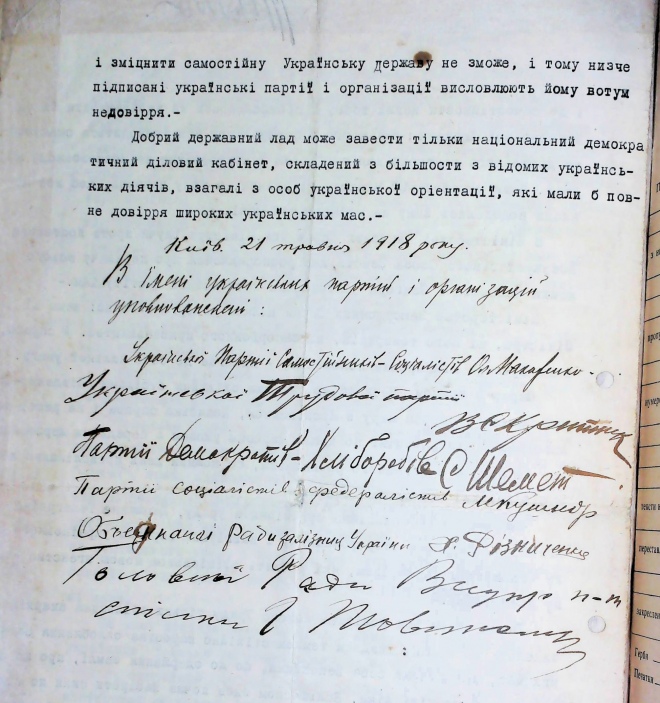 і зміцнити самостійну Українську державу не зможе, і тому низче
підписані українські партії і організації висловлюють йому вотум
недовірря.-
Добрий державний лад може завести тільки національний демокра
тичний діловий кабінет, складений з більшости з відомих українсь-
ких діячів, взагалі з особ української оріентації, які мали б пов-
не довірря широких українських мас.-
Київ. 21 травня 1918 року.
В імені українських партій і організацій
уповноваженні :
Української Партії Самостійників-Соціалістів Ол. Макаренко-
Української Трудової партії
Партії Демократів-Хліборобів С Шемет
Партії соціалістів федералістів М Кушнір
Объеднаної Ради залізниц України
Головної Ради
спілки
Герби
Печатки